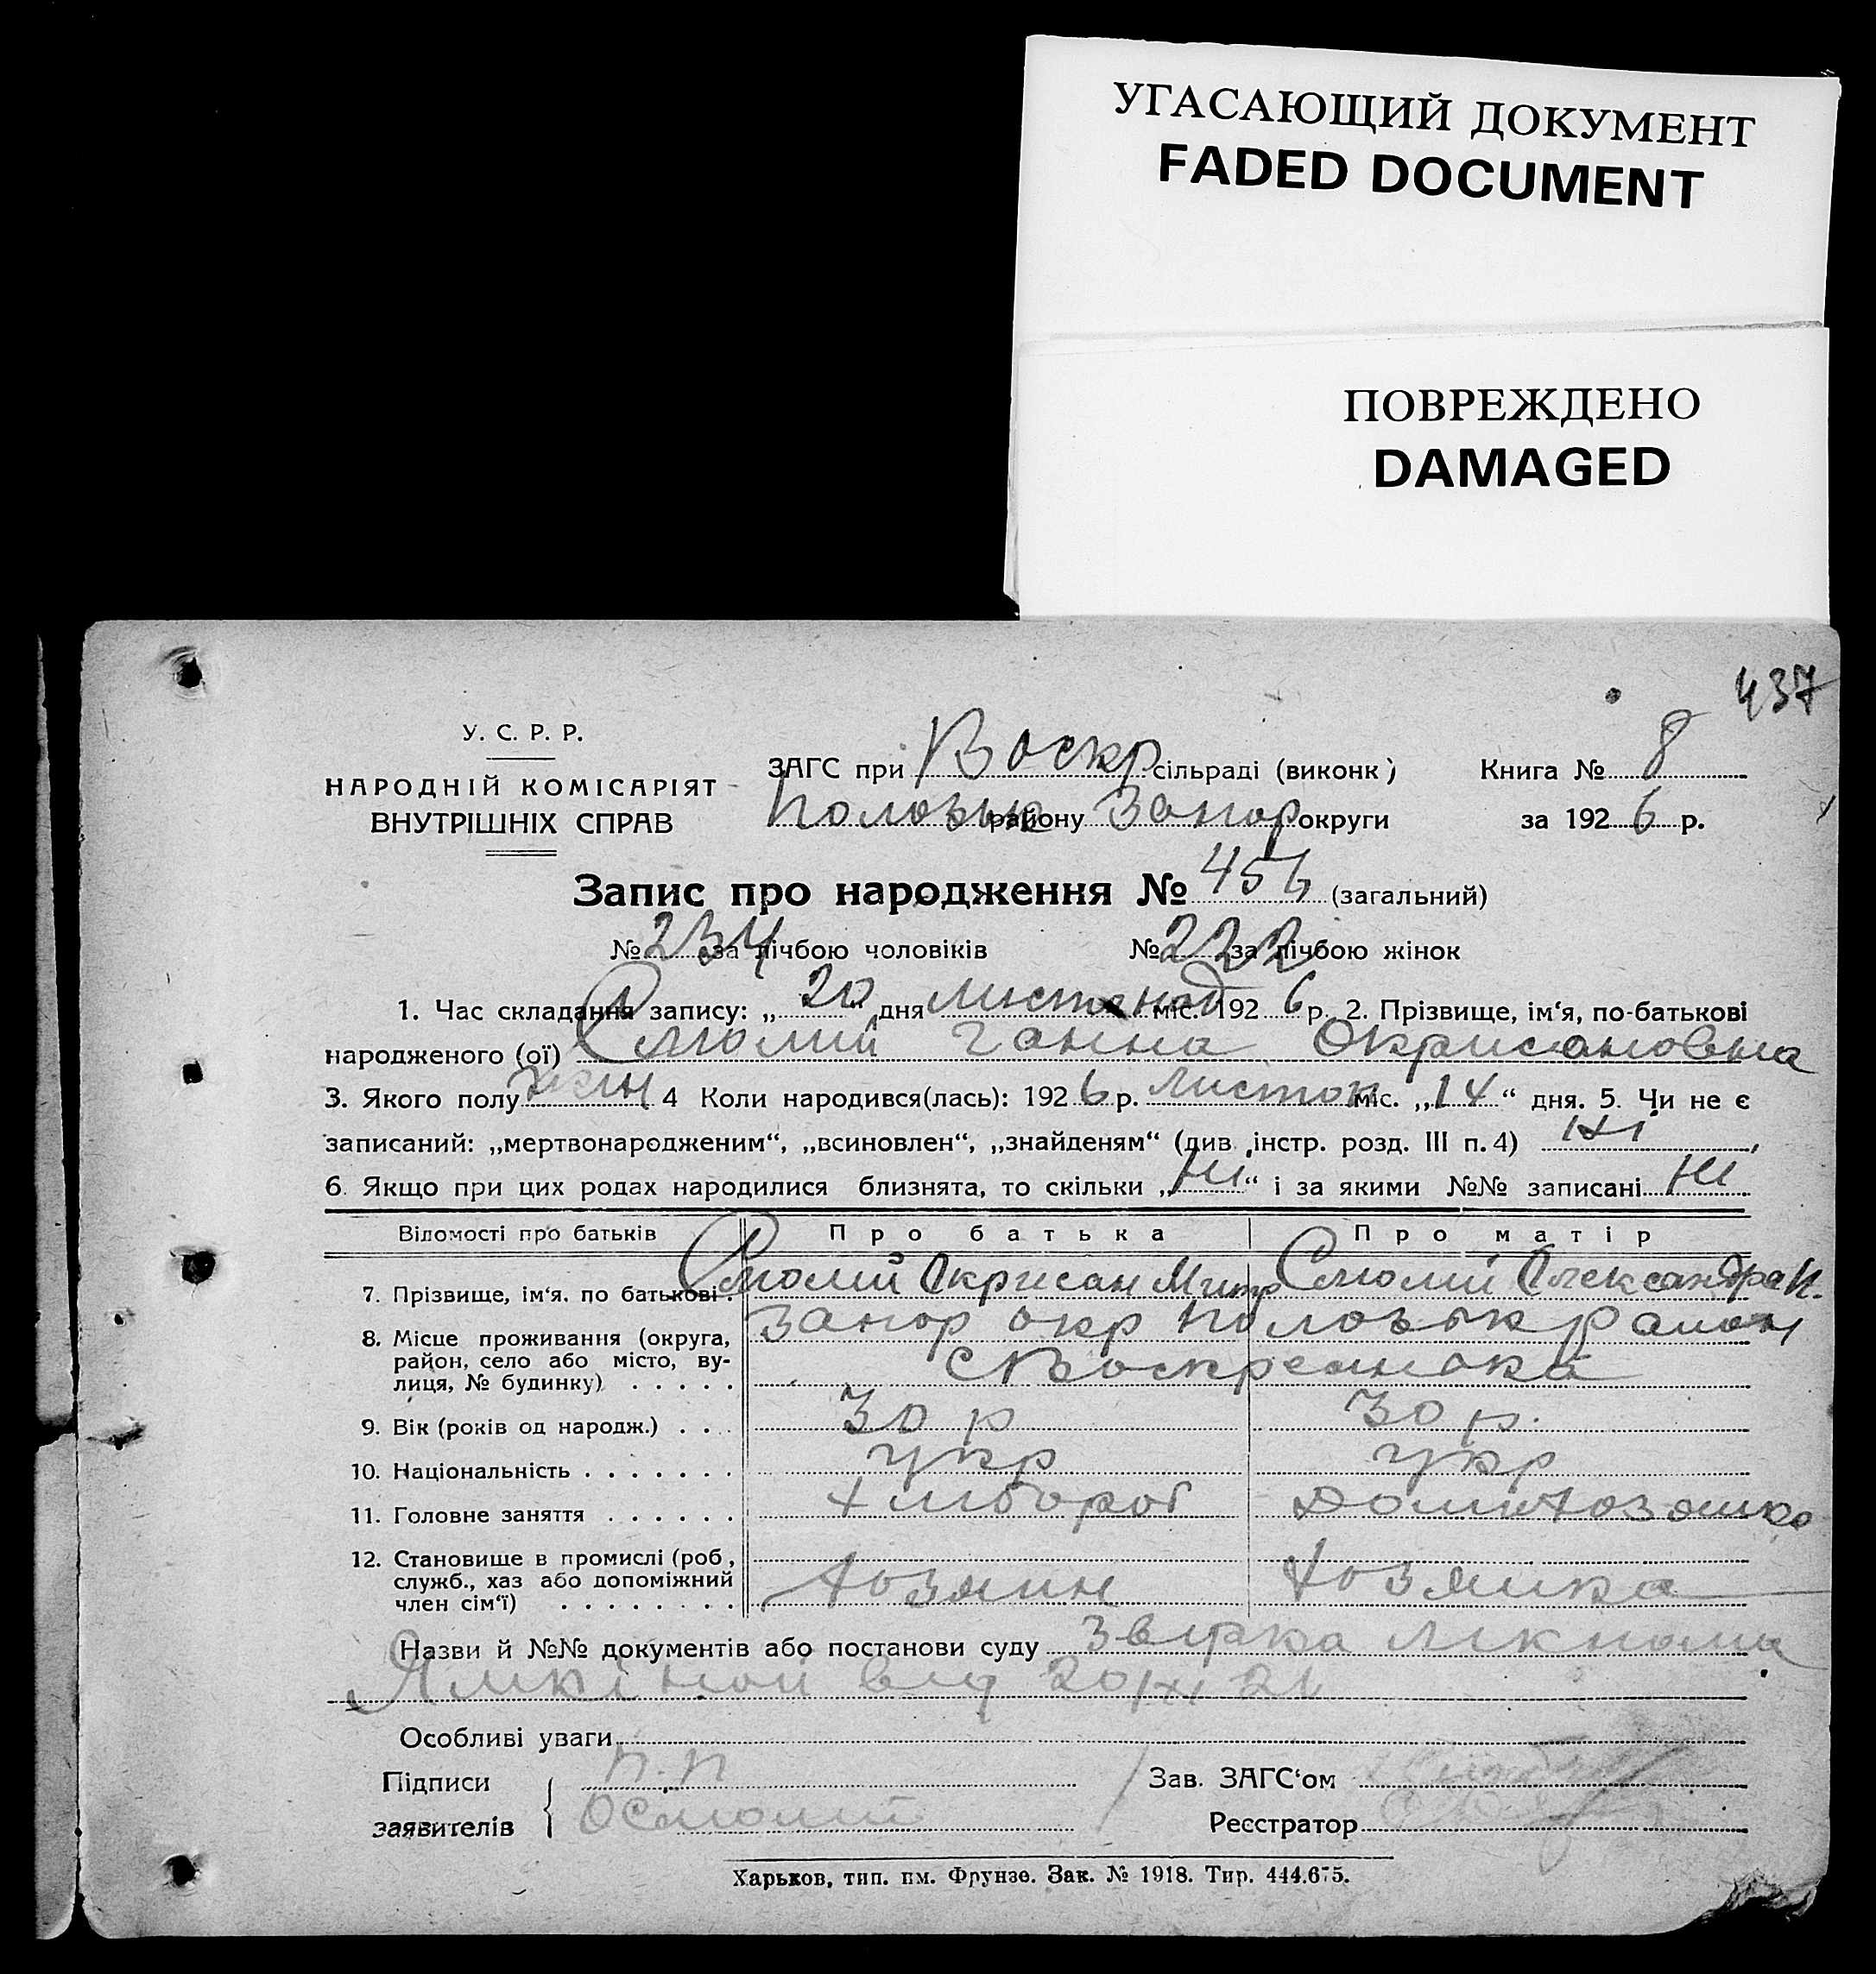 УГАСАЮЩИЙ ДОКУМЕНТ
FADED DOCUMENT
ПОВРЕЖДЕНО
DAMAGED
437
У. С. Р. Р.
НАРОДНІЙ КОМІСАРІЯТ
ВНУТРІШНІХ СПРАВ
ЗАГС при Воскр сільраді (виконк) Книга № 8
району Запор округи за 1926 р.
Запис про народження № 456 (загальний)
№ 234 за лічбою чоловіків № 222 за лічбою жінок
1. Час складання запису: „20“ дня листопад міс. 1926 р. 2. Прізвище, ім‘я, по-батькові
народженого (ої) Смолий Ганна
3. Якого полу жін 4 Коли народився(лась): 1926 р. Листоп міс. „14“ дня. 5. Чи не є
записаний: „мертвонародженим“, „всиновлен“, „знайденям“ (див інстр. розд. III п. 4) ні
6. Якщо при цих родах народилися близнята, то скільки „ні“ і за якими №№ записані ні
Відомості про батьків Про батька Про матір
7. Прізвище, ім‘я. по батькові. Смолий Митр Смолий Олександра
8. Місце проживання (округа, Запор окр район
район, село або місто, ву- с Воскресенка
лиця, № будинку) . . . . .
9. Вік (років од народж.) . . . 30 р 30 р.
10. Національність . . . . . . . укр укр
11. Головне заняття . . . . . . Хлібороб
12. Становище в промислі (роб,
служб., хаз або допоміжний Хозяин Хозяйка
член сім‘ї) . . . . . . . .
Назви й №№ документів або постанови суду
від 20/XI 26
Особливі уваги
Підписи П.П Зав. ЗАГС‘ом
заявителів О Смолий Реєстратор
Харьков, тип. им. Фрунзе. Зак. № 1918. Тир. 444.675.